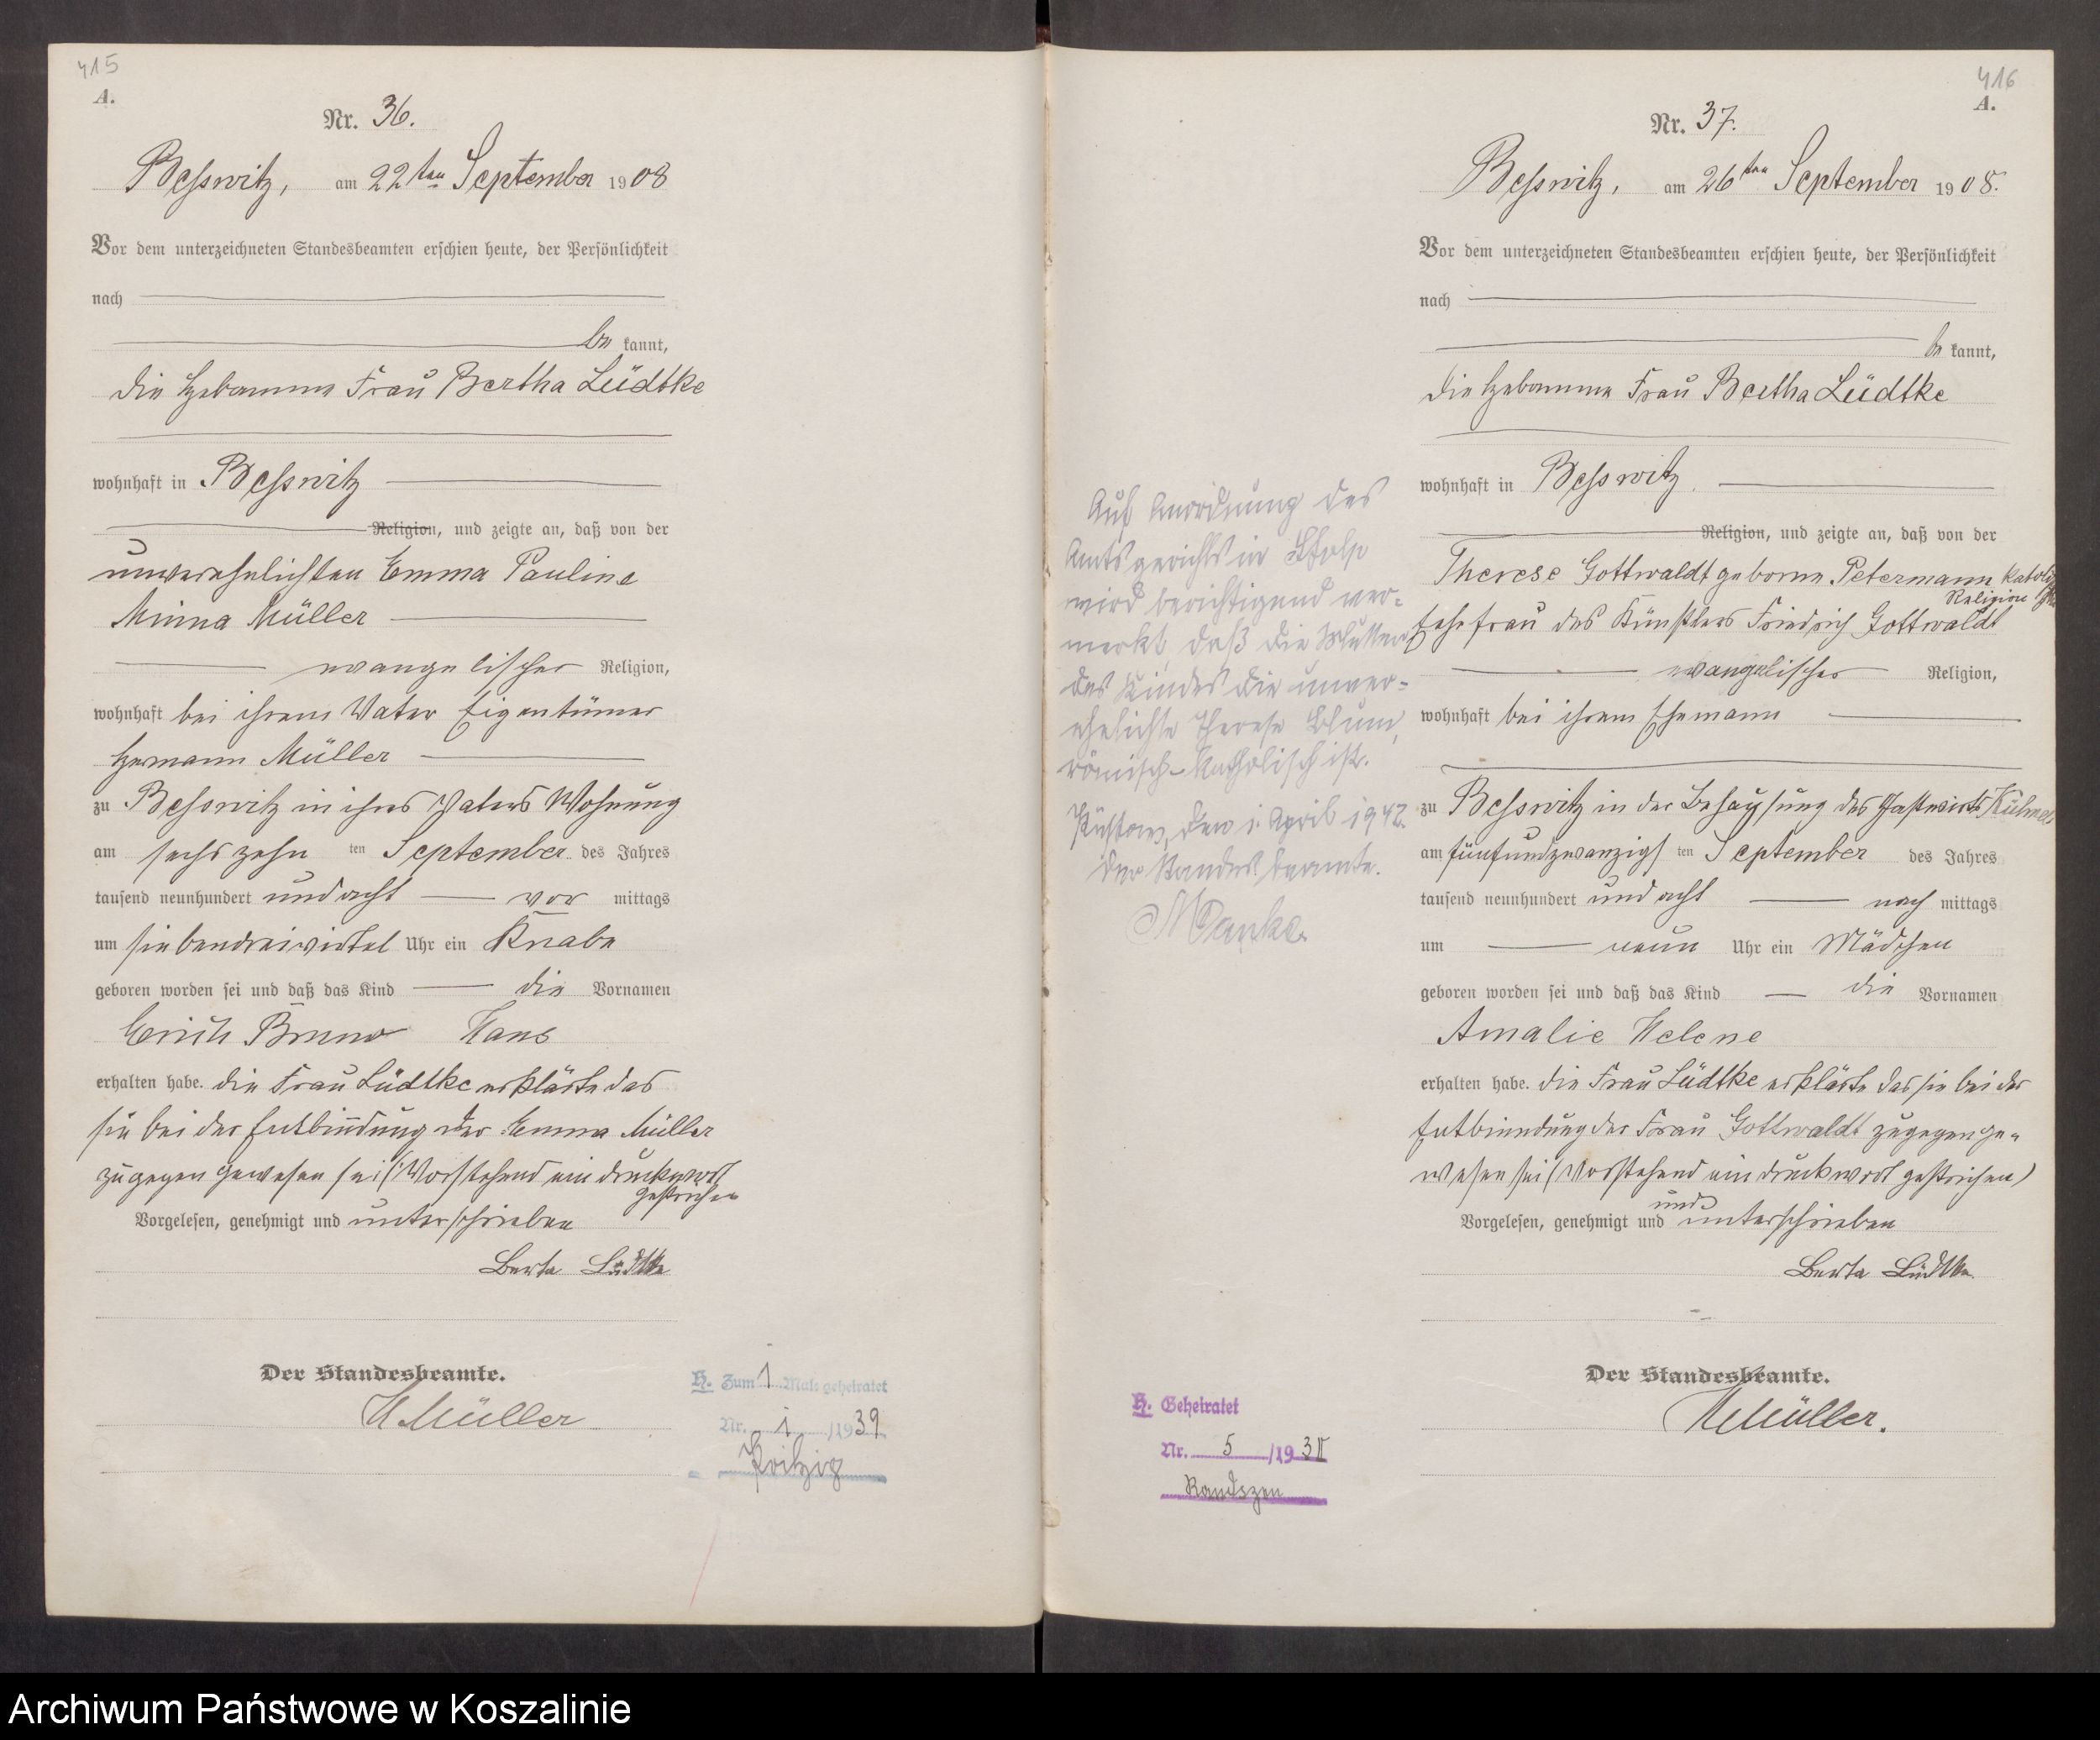 415
A.
Nr. 36.
Besswitz, am 22ten September 1908
Vor dem unterzeichneten Standesbeamten erschien heute, der Persönlichkeit
nach
be kannt,
die Hebamme Frau Bertha Lüdtke
wohnhaft in Besswitz
Religion, und zeigte an, daß von der
unverehelichten Emma Pauline
Minna Müller
evangelischer Religion,
wohnhaft bei ihrem Vater Eigentümer
Hermann Müller
zu Besswitz in ihres Vaters Wohnung
am sechszehn ten September des Jahres
tausend neunhundert und acht vor mittags
um siebendreiviertel Uhr ein Knabe
geboren worden sei und daß das Kind die Vornamen
Erich Bruno Hans
erhalten habe. die Frau Lüdtke erklärte das
sie bei der Entbindung der Emma Müller
zugegen gewesen sei (Vorstehend ein druckwort
gestrichen
Vorgelesen, genehmigt und unterschrieben
Berta Lüdtke
Der Standesbeamte.
HMüller
H. Zum 1 Male geheiratet
Nr. 1 /1939
Kritzig
416
A.
Nr. 37.
Besswitz, am 26ten September 1908.
Vor dem unterzeichneten Standesbeamten erschien heute, der Persönlichkeit
nach
be kannt,
die Hebamme Frau Bertha Lüdtke
wohnhaft in Besswitz
Religion, und zeigte an, daß von der
Therese Gottwaldt geborne Petermann,
Religion
Ehefrau des Künstlers Friedrich Gottwaldt
evangelischer Religion,
wohnhaft bei ihrem Ehemann
zu Besswitz in der Behaussung des Gastwirts
am fünfundzwanzigs ten September des Jahres
tausend neunhundert und acht nach mittags
um neun Uhr ein Mädchen
geboren worden sei und daß das Kind die Vornamen
Amalie Helene
erhalten habe. die Frau Lüdtke erklärte das sie bei der
Entbindung der Frau Gottwaldt zugegen ge-
wesen sei (Vorstehend ein druckwort gestrichen)
und
Vorgelesen, genehmigt und unterschrieben
Berta Lüdtke
Der Standesbeamte.
HMüller.
Auf Anordnung des
Amtsgerichts in Stolp
wird berichtigend ver-
merkt, daß die Mutter
des Kindes die unver-
ehelichte Therese Blum,
römisch-katholisch ist.
den 1. April 1942.
Der Standesbeamte.
H. Geheiratet
Nr. 5 /19
Archiwum Państwowe w Koszalinie